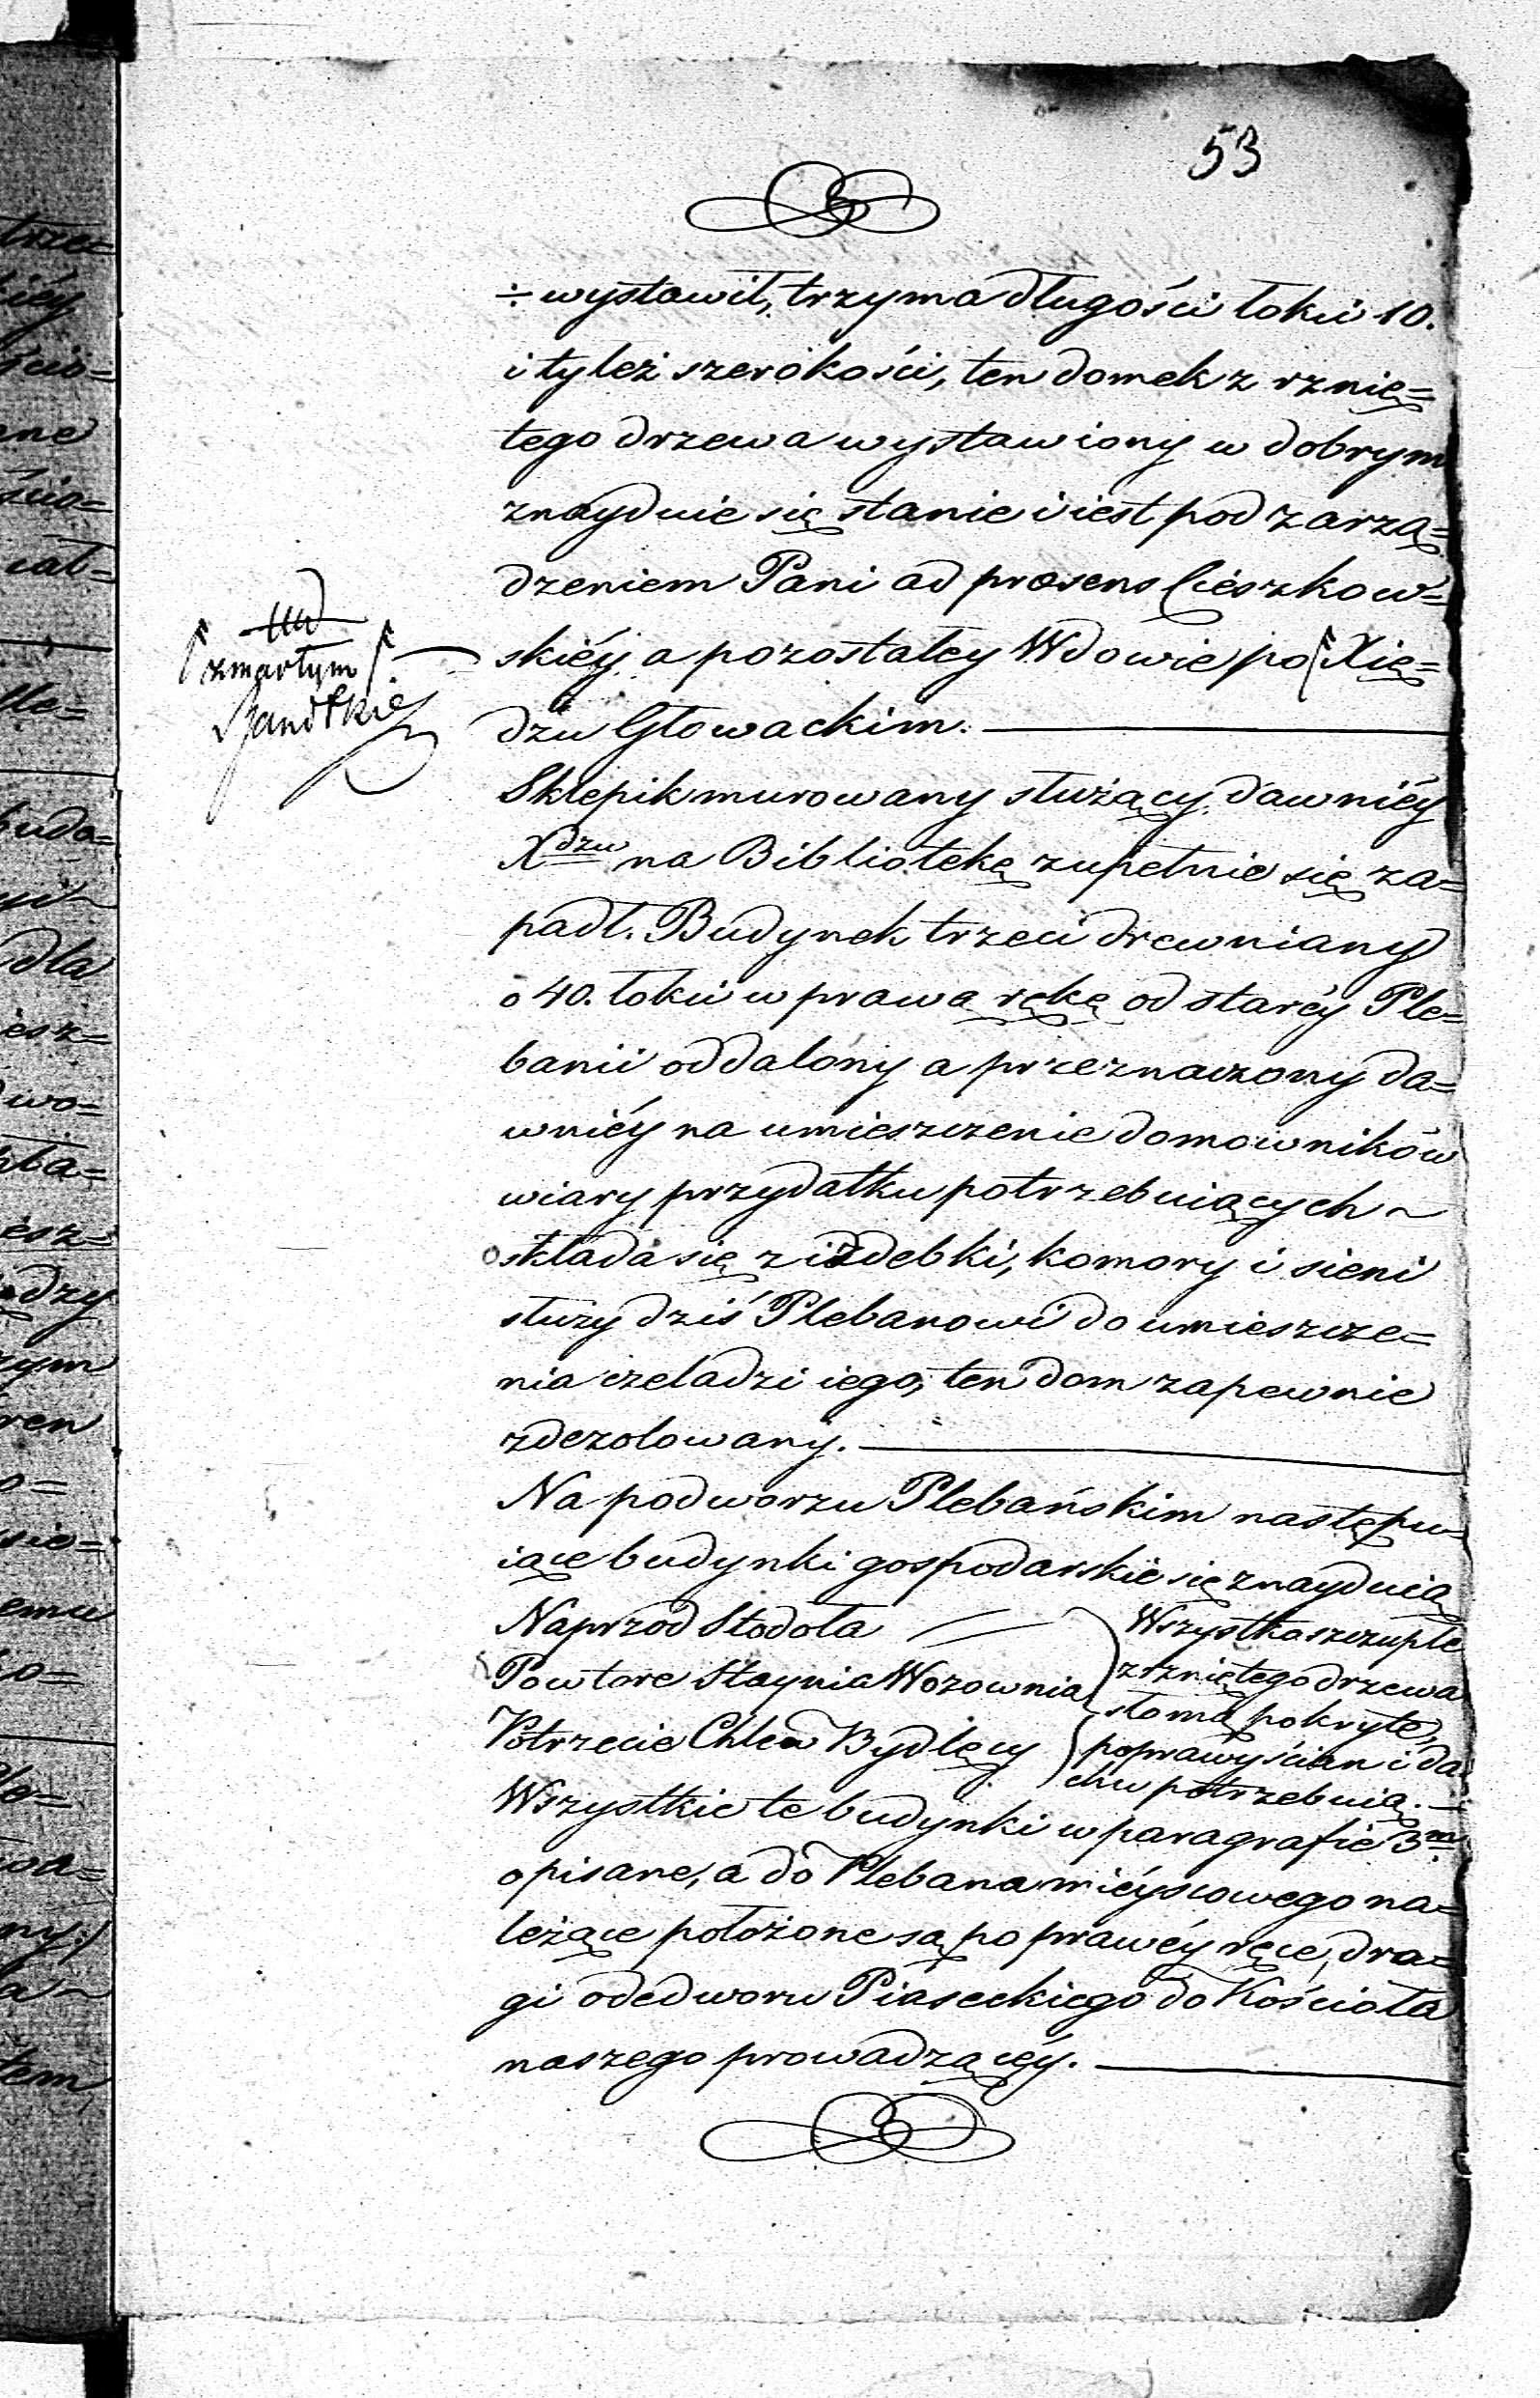 53
÷ wystawił, trzyma długości łokci 10.
i tyleż szerokości, ten domek z rznię=
tego drzewa wystawiony w dobrym
znayduie się stanie i iest pod zarzą=
dzeniem Pani ad præsens Cieszkow=
skiéy, a pozostałey Wdowie po Xię=
zmarłym
dzu Głowackim.
Sklepik murowany służący dawniéy
Xdzu na Bibliotekę zupełnie się za=
padł. Budynek trzeci drewniany
o 40. łokci w prawą rękę od staréy Ple=
banii oddalony a przeznaczony da=
wniéy na umieszczenie domowników
wiary przydatku potrzebuiących ~
składa się z izdebki, komory i sieni
służy dziś Plebanowi do umieszcze=
nia czeladzi iego, ten dom zapewnie
zdezolowany.
Na podworzu Plebańskim następu=
iące budynki gospodarskie się znayduią
Naprzod Stodoła
Powtore Staynia Wozownia
Potrzecie Chlew Bydlęcy
Wszystko szczupłe
z rzniętego drzewa
słomą pokryte,
poprawy ścian i da
chu potrzebuią.
Wszystkie te budynki w paragrafie 3m
opisane, a do Plebana mieyscowego na=
leżące położone są po prawéy ręce, dro=
gi odedworu Piaseckiego do Kościoła
naszego prowadzącéy.